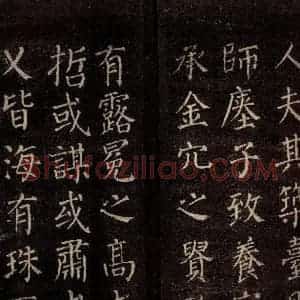 人夫斯築臺
師塵子致養
承金穴之賢
有露冕之高
哲或謀或肅或
乂皆海有珠
shufaziliao.COM